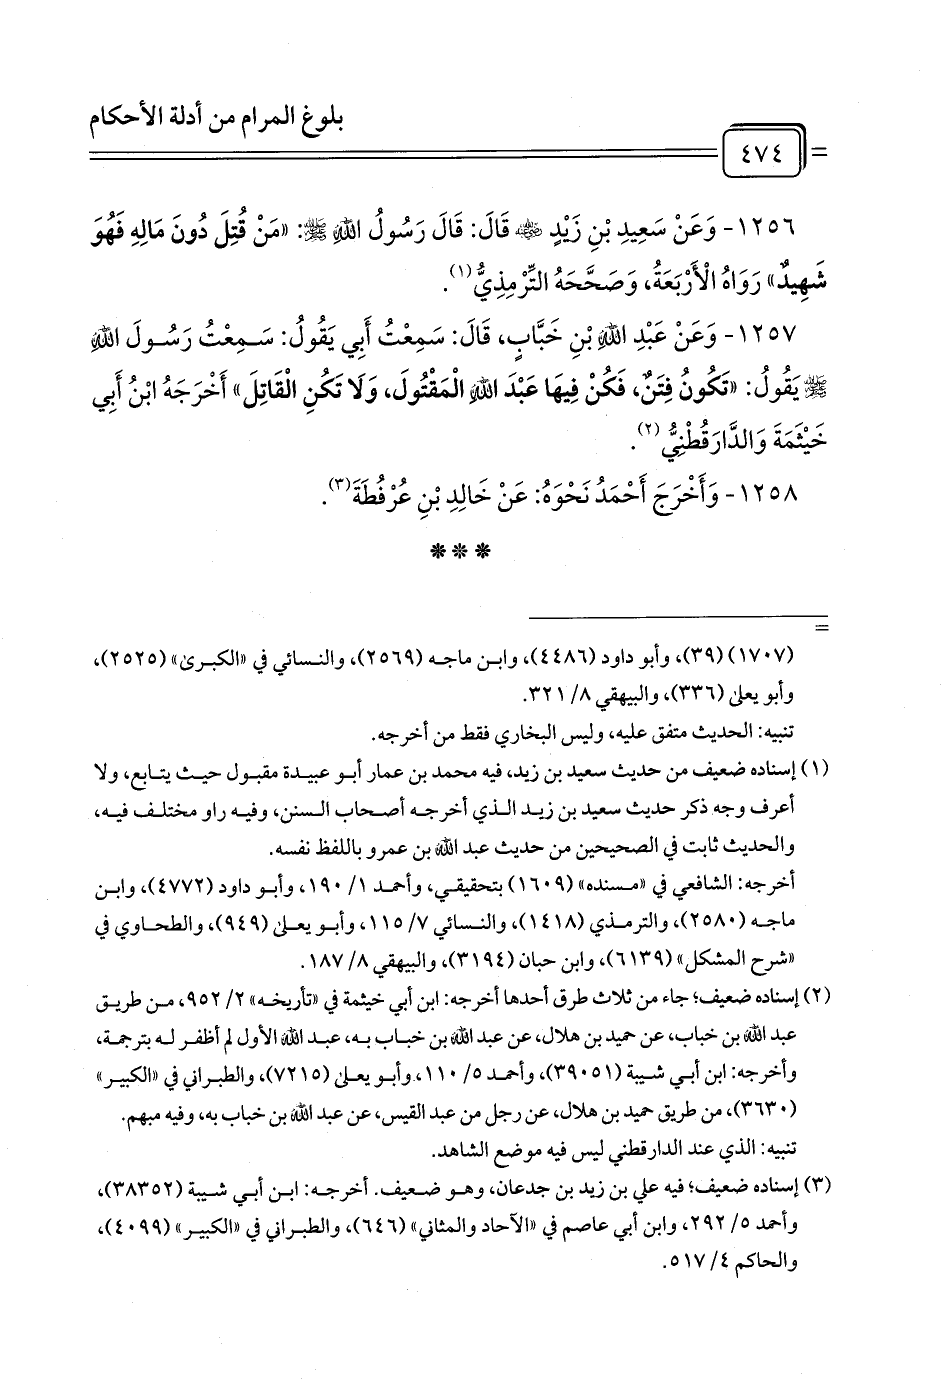 بلوغ المرام من أدلة الأحكام
٤٧٤
١٢٥٦- وَعَنْ سَعِيدِ بْنِ زَيْدٍ ﵁ قَالَ: قَالَ رَسُولُ اللهِ ﷺ: «مَنْ قُتِلَ دُونَ مَالِهِ فَهُوَ
شَهِيدٌ» رَوَاهُ الْأَرْبَعَةُ، وَصَحَّحَهُ التِّرْمِذِيُّ(١).
١٢٥٧- وَعَنْ عَبْدِ اللهِ بْنِ خَبَّابٍ، قَالَ: سَمِعْتُ أَبِي يَقُولُ: سَمِعْتُ رَسُولَ اللهِ
ﷺ يَقُولُ: «تَكُونُ فِتَنٌ، فَكُنْ فِيهَا عَبْدَ اللهِ الْمَقْتُولَ، وَلَا تَكُنِ الْقَاتِلَ» أَخْرَجَهُ ابْنُ أَبِي
خَيْثَمَةَ وَالدَّارَقُطْنِيُّ(٢).
١٢٥٨- وَأَخْرَجَ أَحْمَدُ نَحْوَهُ: عَنْ خَالِدِ بْنِ عُرْفُطَةَ(٣).
***
=
(١٧٠٧) (٣٩)، وأبو داود (٤٤٨٦)، وابن ماجه (٢٥٦٩)، والنسائي في «الكبرىٰ» (٢٥٢٥)،
وأبو يعلىٰ (٣٣٦)، والبيهقي ٨/ ٣٢١.
تنبيه: الحديث متفق عليه، وليس البخاري فقط من أخرجه.
(١) إسناده ضعيف من حديث سعيد بن زيد، فيه محمد بن عمار أبو عبيدة مقبول حيث يتابع، ولا
أعرف وجه ذكر حديث سعيد بن زيد الذي أخرجه أصحاب السنن، وفيه راو مختلف فيه،
والحديث ثابت في الصحيحين من حديث عبد الله بن عمرو باللفظ نفسه.
أخرجه: الشافعي في «مسنده» (١٦٠٩) بتحقيقي، وأحمد ١/ ١٩٠، وأبو داود (٤٧٧٢)، وابن
ماجه (٢٥٨٠)، والترمذي (١٤١٨)، والنسائي ٧/ ١١٥، وأبو يعلىٰ (٩٤٩)، والطحاوي في
«شرح المشكل» (٦١٣٩)، وابن حبان (٣١٩٤)، والبيهقي ٨/ ١٨٧.
(٢) إسناده ضعيف؛ جاء من ثلاث طرق أحدها أخرجه: ابن أبي خيثمة في «تأريخه» ٢/ ٩٥٢، من طريق
عبد الله بن خباب، عن حميد بن هلال، عن عبد الله بن خباب به، عبد الله الأول لم أظفر له بترجمة،
وأخرجه: ابن أبي شيبة (٣٩٠٥١)، وأحمد ٥/ ١١٠، وأبو يعلىٰ (٧٢١٥)، والطبراني في «الكبير»
(٣٦٣٠)، من طريق حميد بن هلال، عن رجل من عبد القيس، عن عبد الله بن خباب به، وفيه مبهم.
تنبيه: الذي عند الدارقطني ليس فيه موضع الشاهد.
(٣) إسناده ضعيف؛ فيه علي بن زيد بن جدعان، وهو ضعيف. أخرجه: ابن أبي شيبة (٣٨٣٥٢)،
وأحمد ٥/ ٢٩٢، وابن أبي عاصم في «الآحاد والمثاني» (٦٤٦)، والطبراني في «الكبير» (٤٠٩٩)،
والحاكم ٤/ ٥١٧.